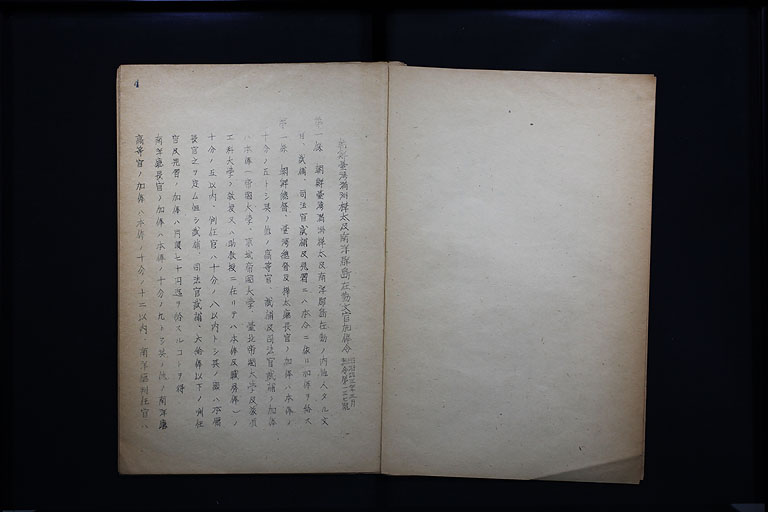 朝鮮台湾満洲樺太及南洋群島在勤文官加俸令
明治四三年三月
勅令第一三七號
第一條 朝鮮臺湾満洲樺太及南洋群島在勤ノ内地人タル文
官、試補、司法官試補及見習ニハ本令ニ依リ加俸ヲ給ス
第二條 朝鮮總督、臺湾總督及樺太廳長官ノ加俸ハ本俸ノ
十分ノ五トシ其ノ他ノ高等官、試補及司法官試補ノ加俸
ハ本俸(帝國大學、京城帝國大學、臺北帝國大學及旅順
工科大學ノ教授又ハ助教授ニ在リテハ本俸及職務俸)ノ
十分ノ五以内、判任官ハ十分ノ八以内トシ其ノ額ハ本屬
長官之ヲ定ム但シ試補、司法官試補、六級俸以下ノ判任
官及見習ノ加俸ハ月額七十円迄ヲ給スルコトヲ得
南洋廳長官ノ加俸ハ本俸ノ十分ノ九トシ其ノ他ノ南洋廳
高等官ノ加俸ハ本俸ノ十分ノ十二以内、南洋廳判任官ハ